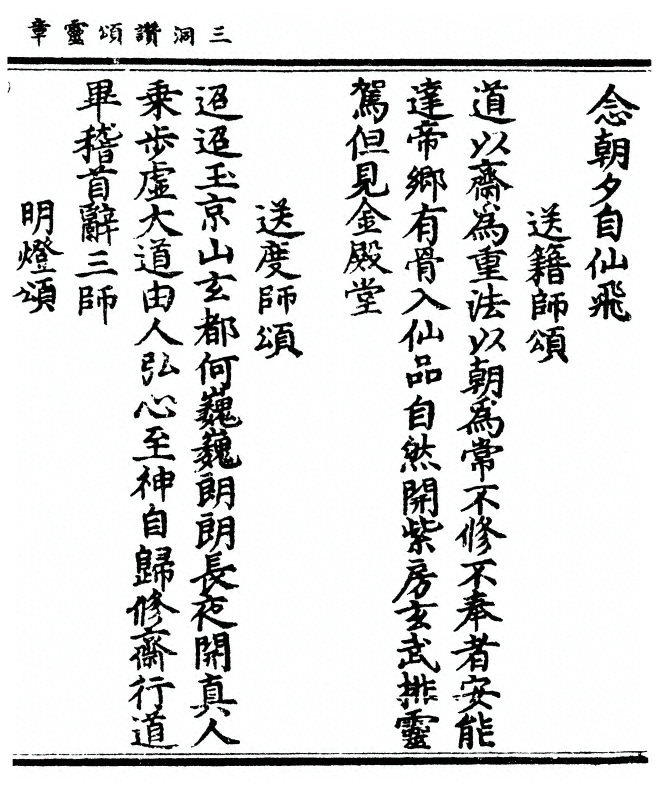 三洞讚頌靈章
念朝夕自仙飛
送籍師頌
道以齋為重法以朝為常不修不奉者安能
達帝鄉有骨入仙品自然開紫房玄武排靈
駕但見金殿堂
送度師頌
迢迢玉京山玄都何巍巍朗朗長夜開真人
乘步虛大道由人弘心至神自歸修齋行道
畢稽首辭三師
明燈頌